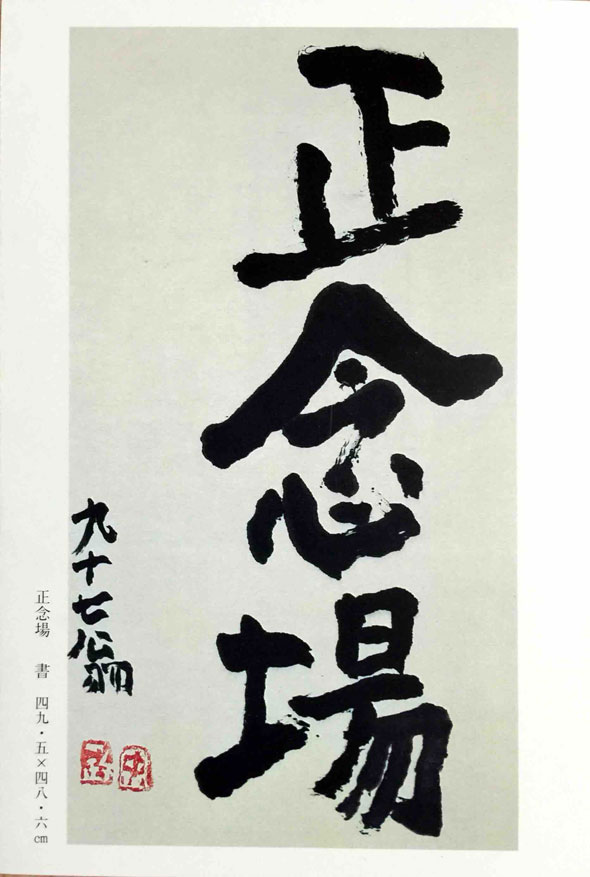 正念場
九十七翁
正念場 書 四九・五×四八・六cm